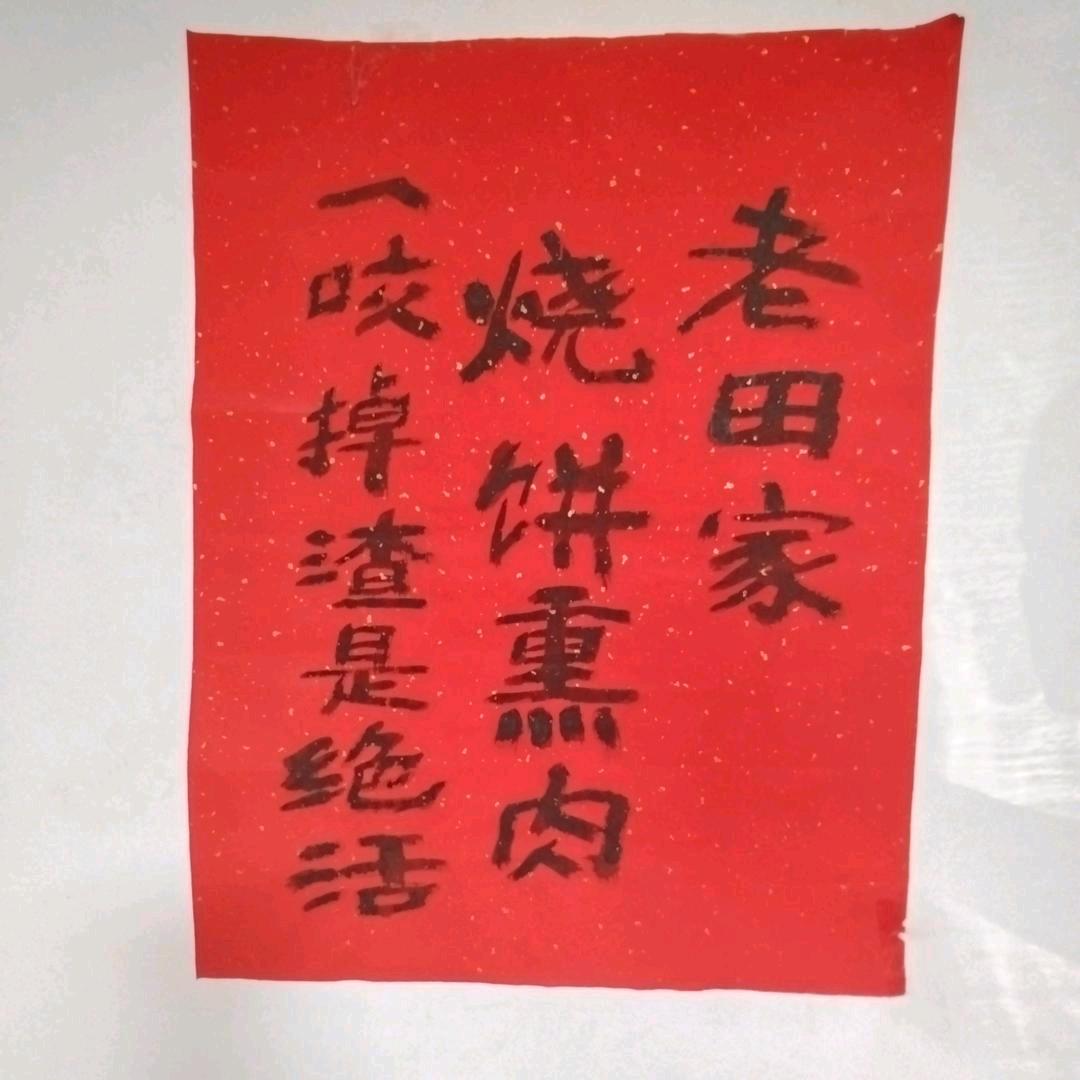 老田家
烧饼熏肉
一咬掉渣是绝活